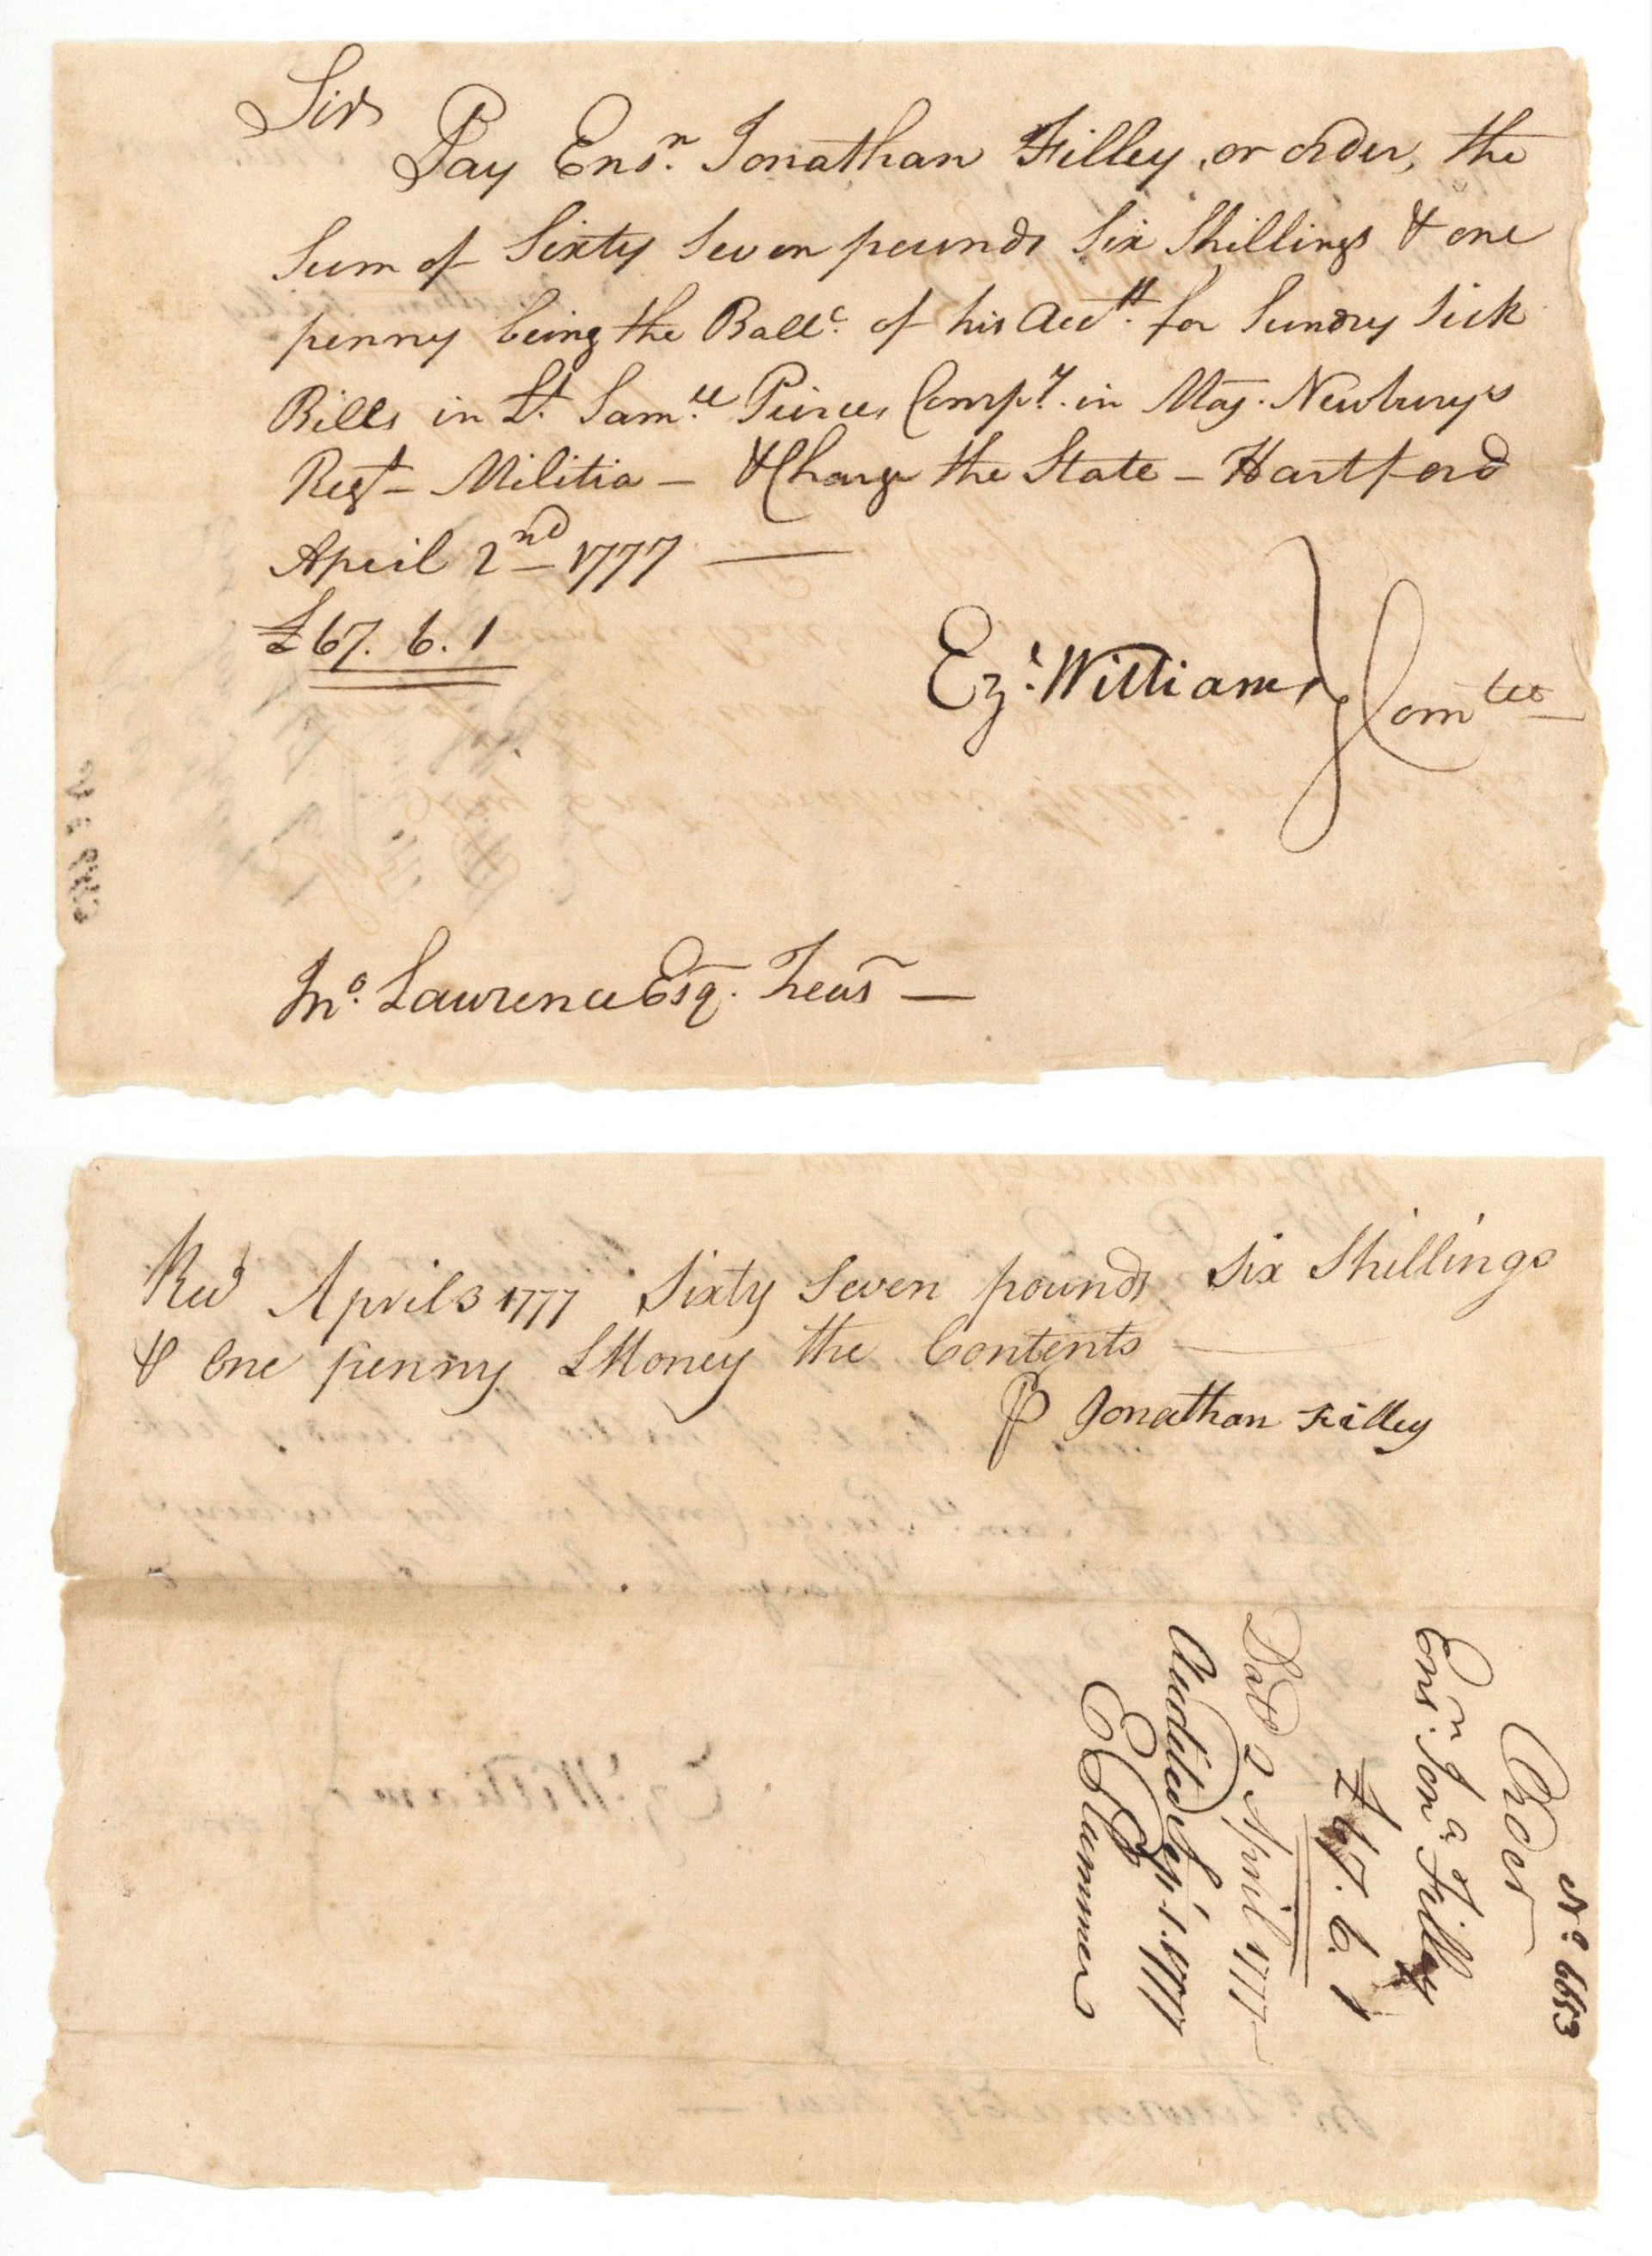 Sir
Pay Ensn. Jonathan Filley, or order, the
Sum of Sixty Seven pounds Six Shillings & one
penny being the Ballc. of his Acctt. for Sundry Sick
Bills in Lt. Samll. Peirces Compy. in Maj. Newburys
Regt - Militia - & Charge the State - Hartford
April 2nd 1777
£67. 6. 1
Ezl. Williams } Comtee
Jno. Lawrence Esq. Treas -
Recd April 3 1777 Sixty Seven pounds Six Shillings
& One penny LMoney the Contents
P Jonathan Filley
No. 6653
Order
Ensn. Jona Filley
£67. 6. 1
Date 2 April 1777
Audited 1. 1777